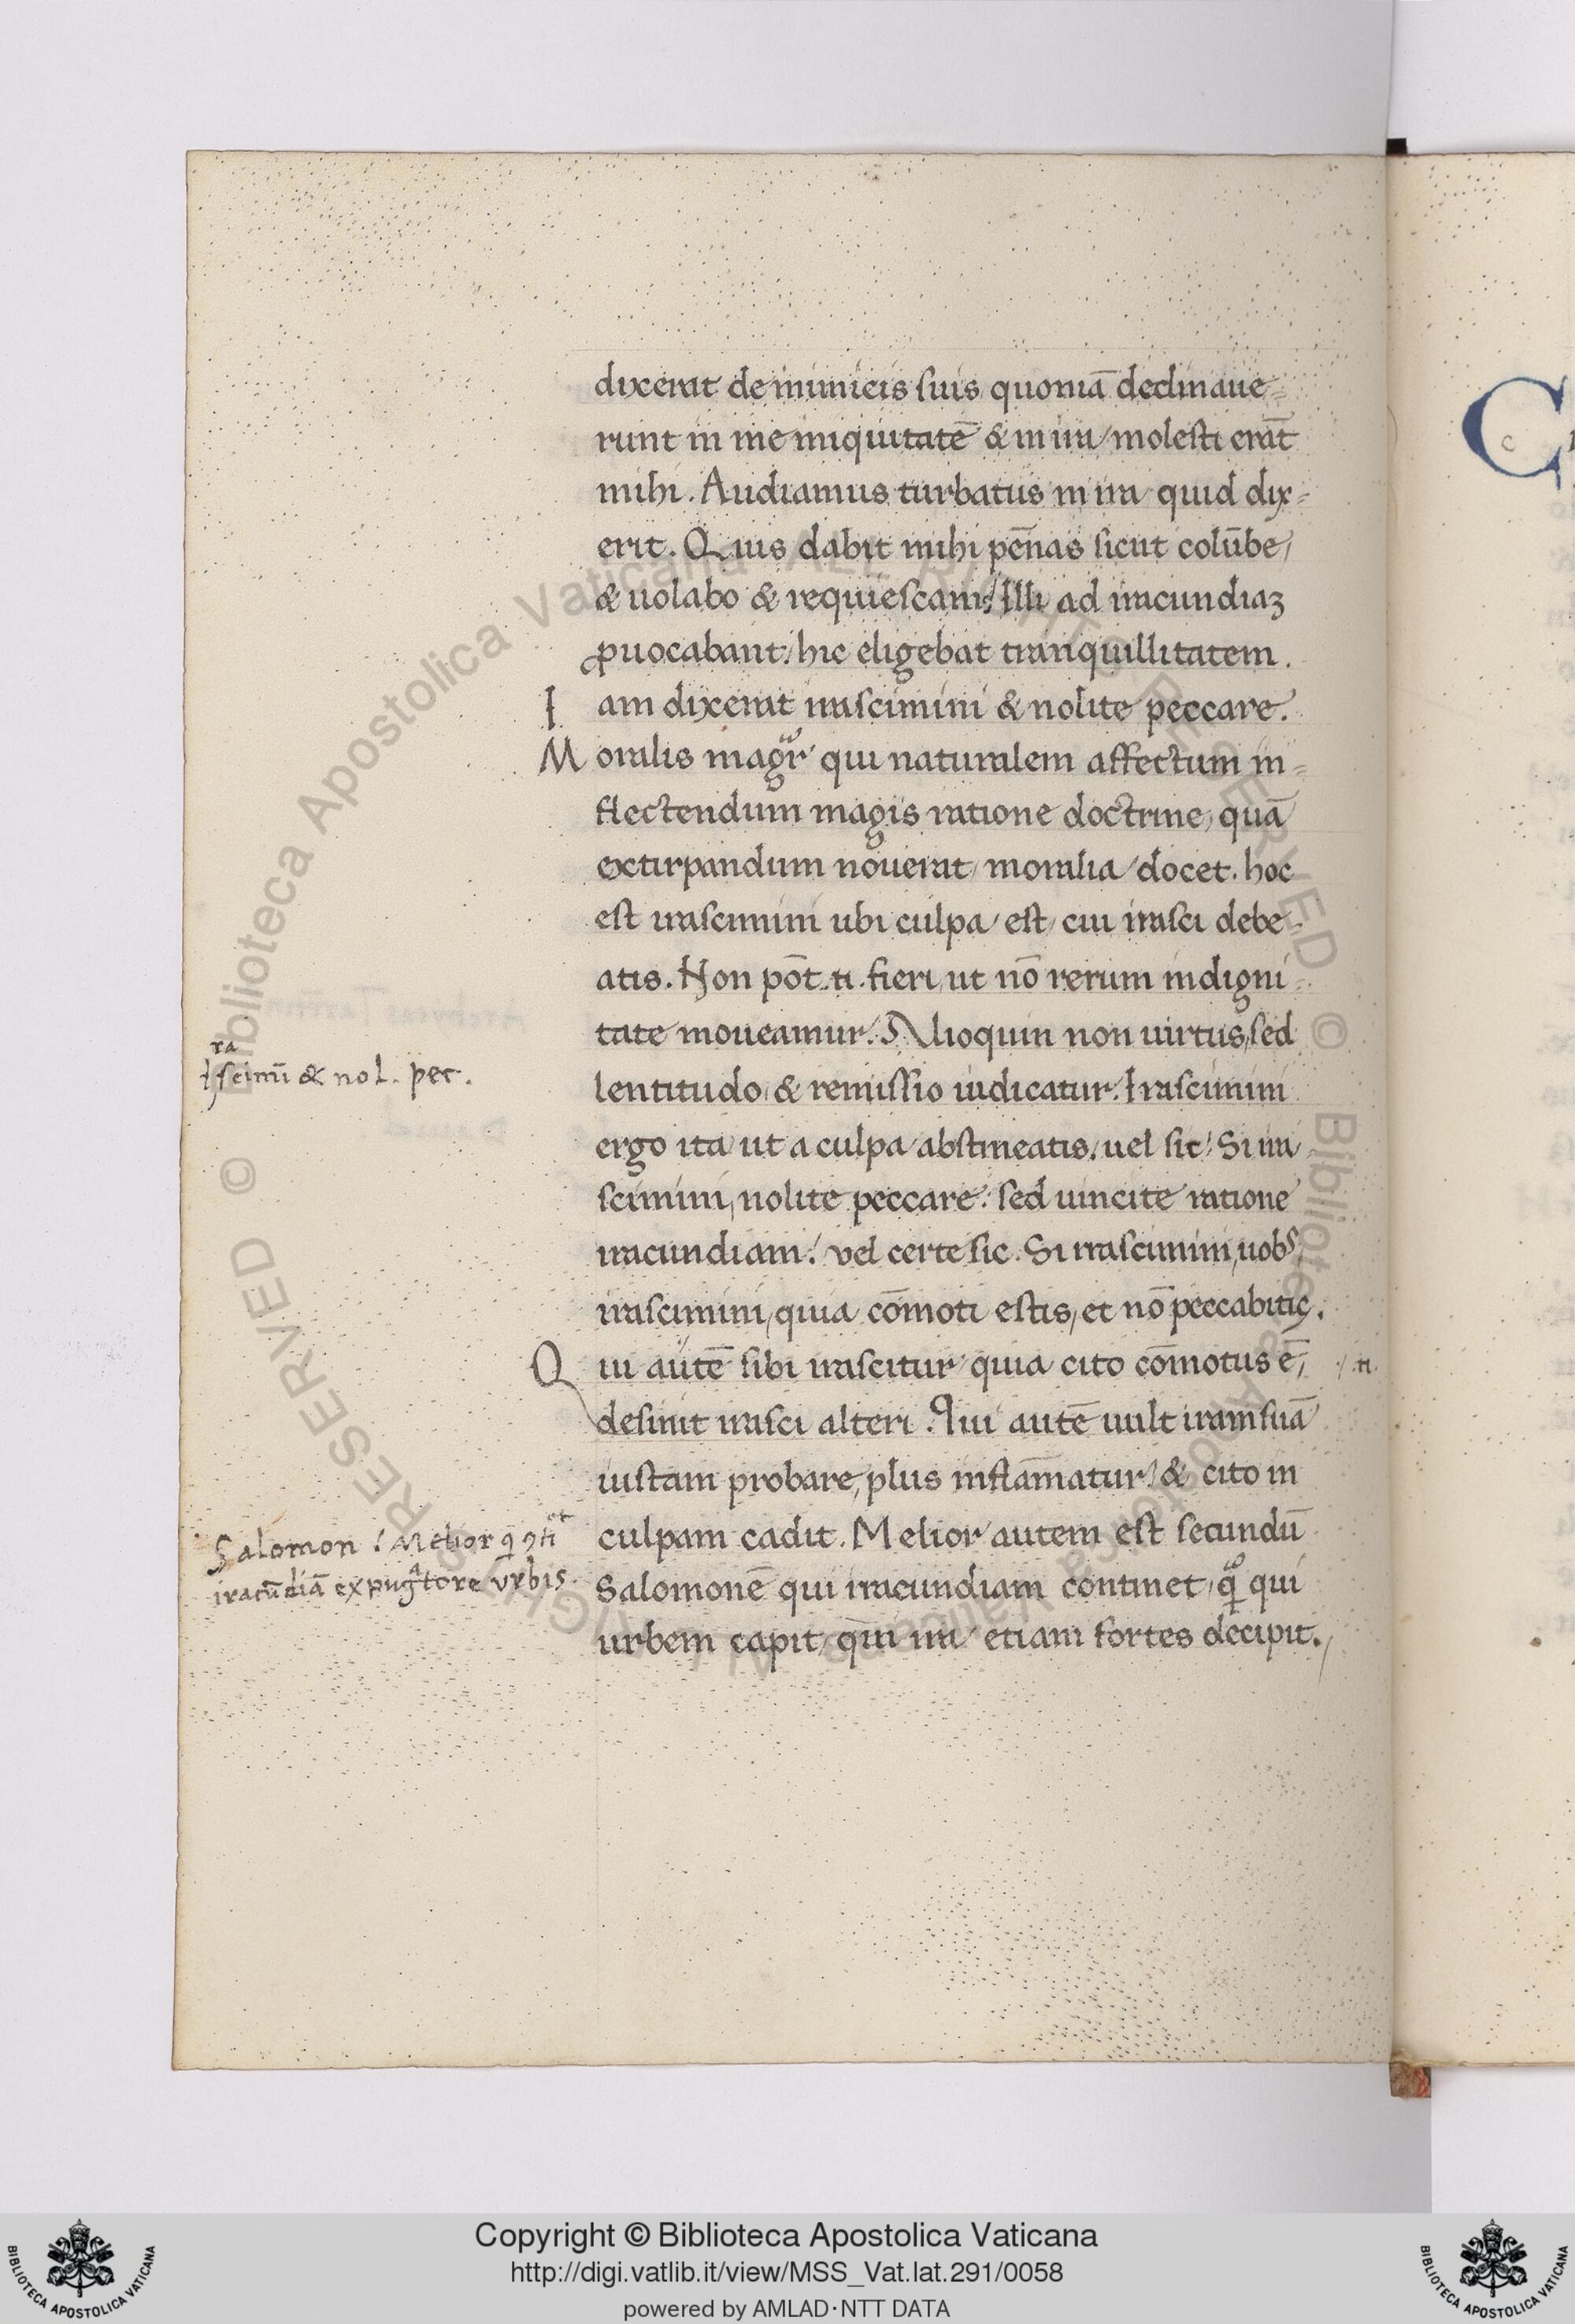 dixerat de inimicis suis quoniā declinaue-
runt in me iniquitatē & in ira molesti erāt
mihi. Audiamus turbatus in ira quid dix-
erit. Quis dabit mihi pēnas sicut colūbe,
& uolabo & requiescam? Illi ad iracundiaꝫ
ꝓuocabant: hic eligebat tranquillitatem.
Iam dixerat irascimini & nolite peccare.
Moralis magr̄ qui naturalem affectum in-
flectendum magis ratione doctrine, quā
extirpandum nouerat, moralia docet. hoc
est irascimini ubi culpa est, cui irasci debe-
atis. Non pōt .n. fieri, ut nō rerum indigni-
tate moueamur. Alioquin non uirtus, sed
lentitudo, & remissio iudicatur. Irascimini
ergo ita ut a culpa abstineatis. uel sic: Si ira-
scimini, nolite peccare: sed uincite ratione
iracundiam: vel certe sic. Si irascimini, uobˢ
irascimini, quia cōmoti estis, et nō peccabitis.
Qui autē sibi irascitur quia cito cōmotus ē, / .n.
desinit irasci alteri. Qui autē uult iram suā
iustam probare, plus inflāmatur: & cito in
culpam cadit. Melior autem est secundū
Salomonē qui iracundiam continet, qͦ̄ qui
urbem capit, qm̄ ira etiam fortes decipit.
Irascimī & nol. pec.
Salomon: Melior q ꝯtiet
iracūdiā expugᵃtore vrbis.
Copyright © Biblioteca Apostolica Vaticana
http://digi.vatlib.it/view/MSS_Vat.lat.291/0058
powered by AMLAD·NTT DATA